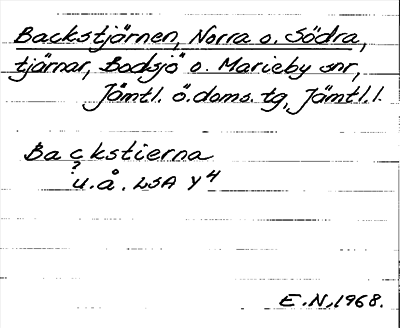 Backstjärnen, Norra o. Södra,
tjärnar, Bodsjö o. Marieby snr,
Jämtl. ö. doms. tg, Jämtl. l.
Backstierna
?
u. å. LSA Y4
E. N. 1968.